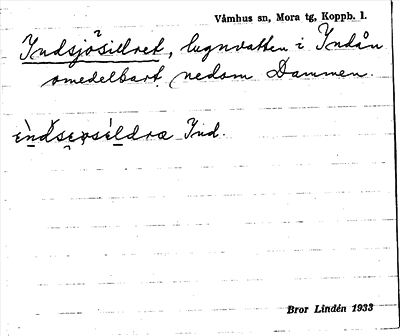 Våmhus sn, Mora tg, Koppb. l.
Yndsjösillret, lugnvatten i Yndån
omedelbart nedom Dammen.
Ynd.
Bror Lindén 1933